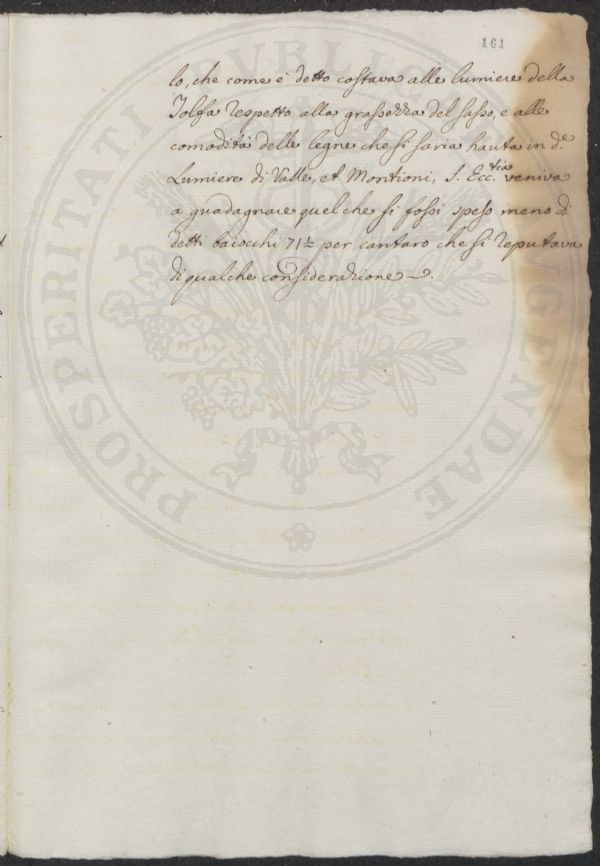 161
lo, che come è detto costava alle lumiere della
Tolfa respetto alla grassezza del sasso, e alle
comodità delle legne che si saria hauta in d.e
Lumiere di Valle, et Montioni, S. Ecc.tia veniva
a guadagnare quel che si fossi speso meno di
detti baiocchi 71½ per cantaro che si reputava
di qualche considerazione.
PROSPERITATI PVBLICAE AVGENDAE